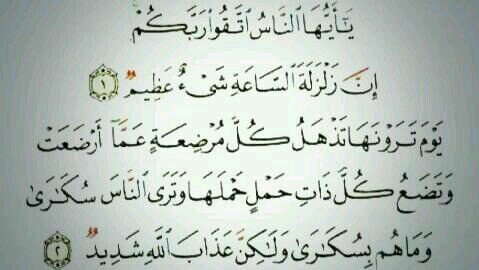 يَٰٓأَيُّهَا النَّاسُ اتَّقُوا رَبَّكُمْ
إِنَّ زَلْزَلَةَ السَّاعَةِ شَىْءٌ عَظِيمٌ ١
يَوْمَ تَرَوْنَهَا تَذْهَلُ كُلُّ مُرْضِعَةٍ عَمَّآ أَرْضَعَتْ
وَتَضَعُ كُلُّ ذَاتِ حَمْلٍ حَمْلَهَا وَتَرَى النَّاسَ سُكَٰرَىٰ
وَمَا هُم بِسُكَٰرَىٰ وَلَٰكِنَّ عَذَابَ اللَّهِ شَدِيدٌ ٢